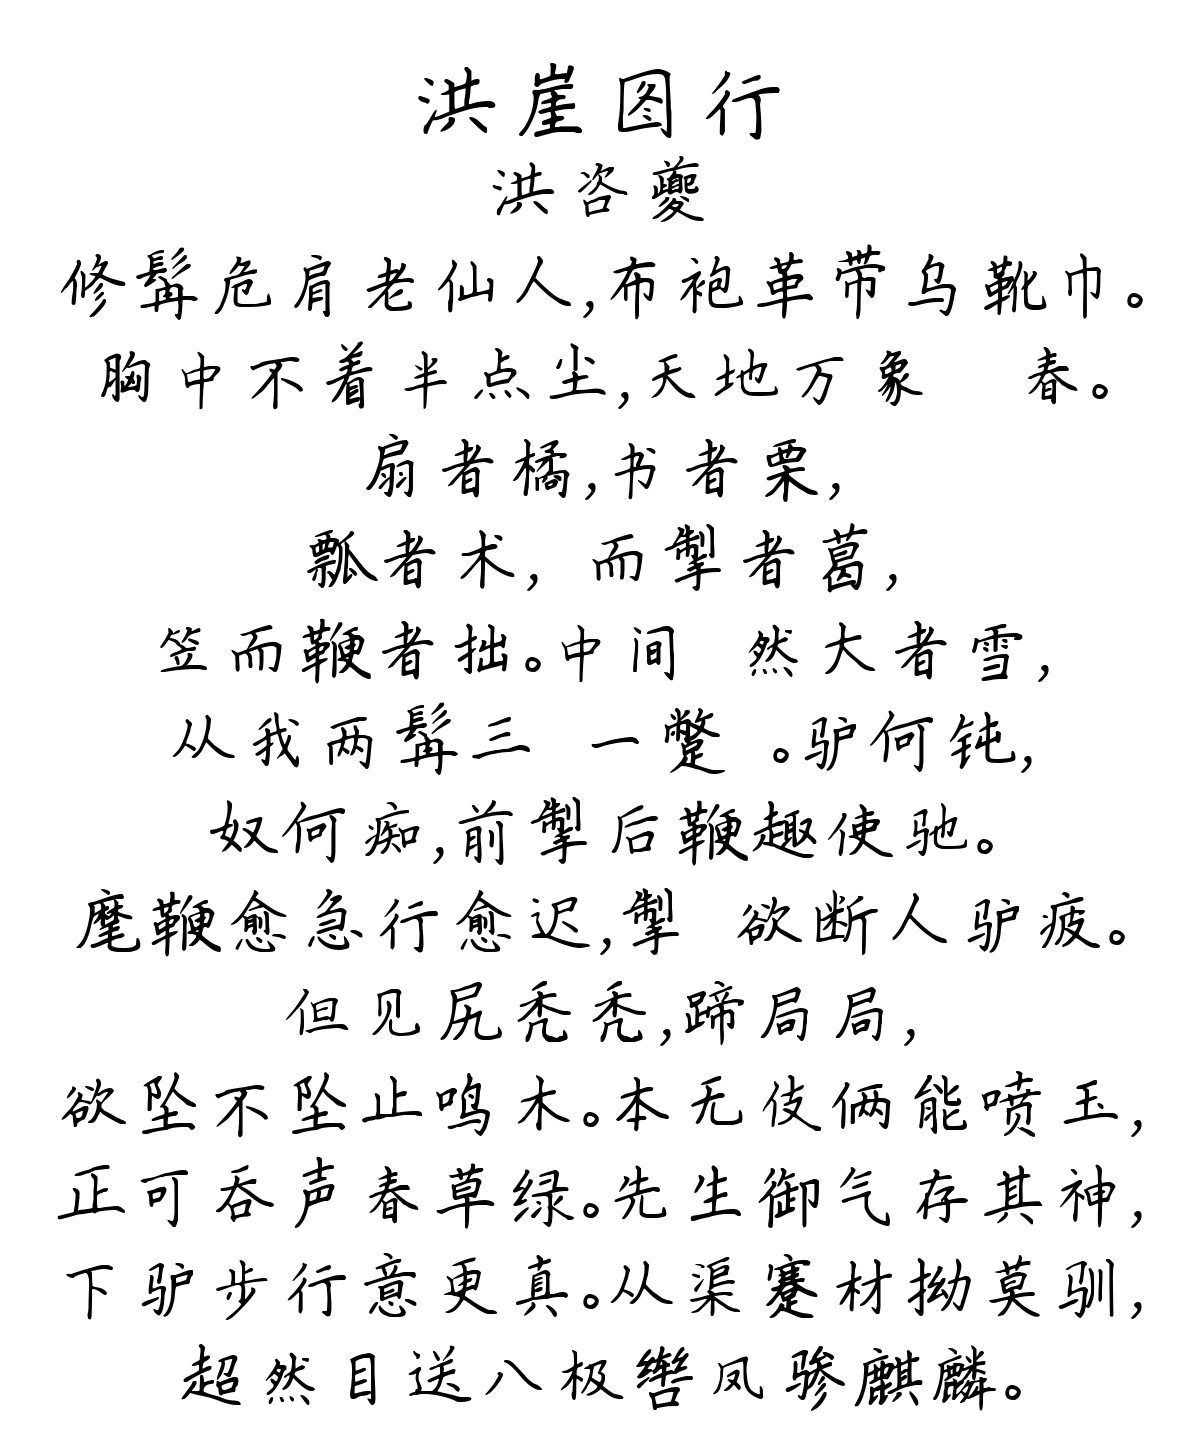 洪崖图行
洪咨夔
修髯危肩老仙人,布袍革带乌靴巾。
胸中不着半点尘,天地万象 春。
扇者橘,书者栗,
瓢者术, 而掣者葛,
笠而鞭者拙。中间 然大者雪,
从我两髯三 一蹩 。驴何钝,
奴何痴,前掣后鞭趣使驰。
麾鞭愈急行愈迟,掣 欲断人驴疲。
但见尻秃秃,蹄局局,
欲坠不坠止鸣木。本无伎俩能喷玉,
正可吞声春草绿。先生御气存其神,
下驴步行意更真。从渠蹇材拗莫驯,
超然目送八极辔凤骖麒麟。